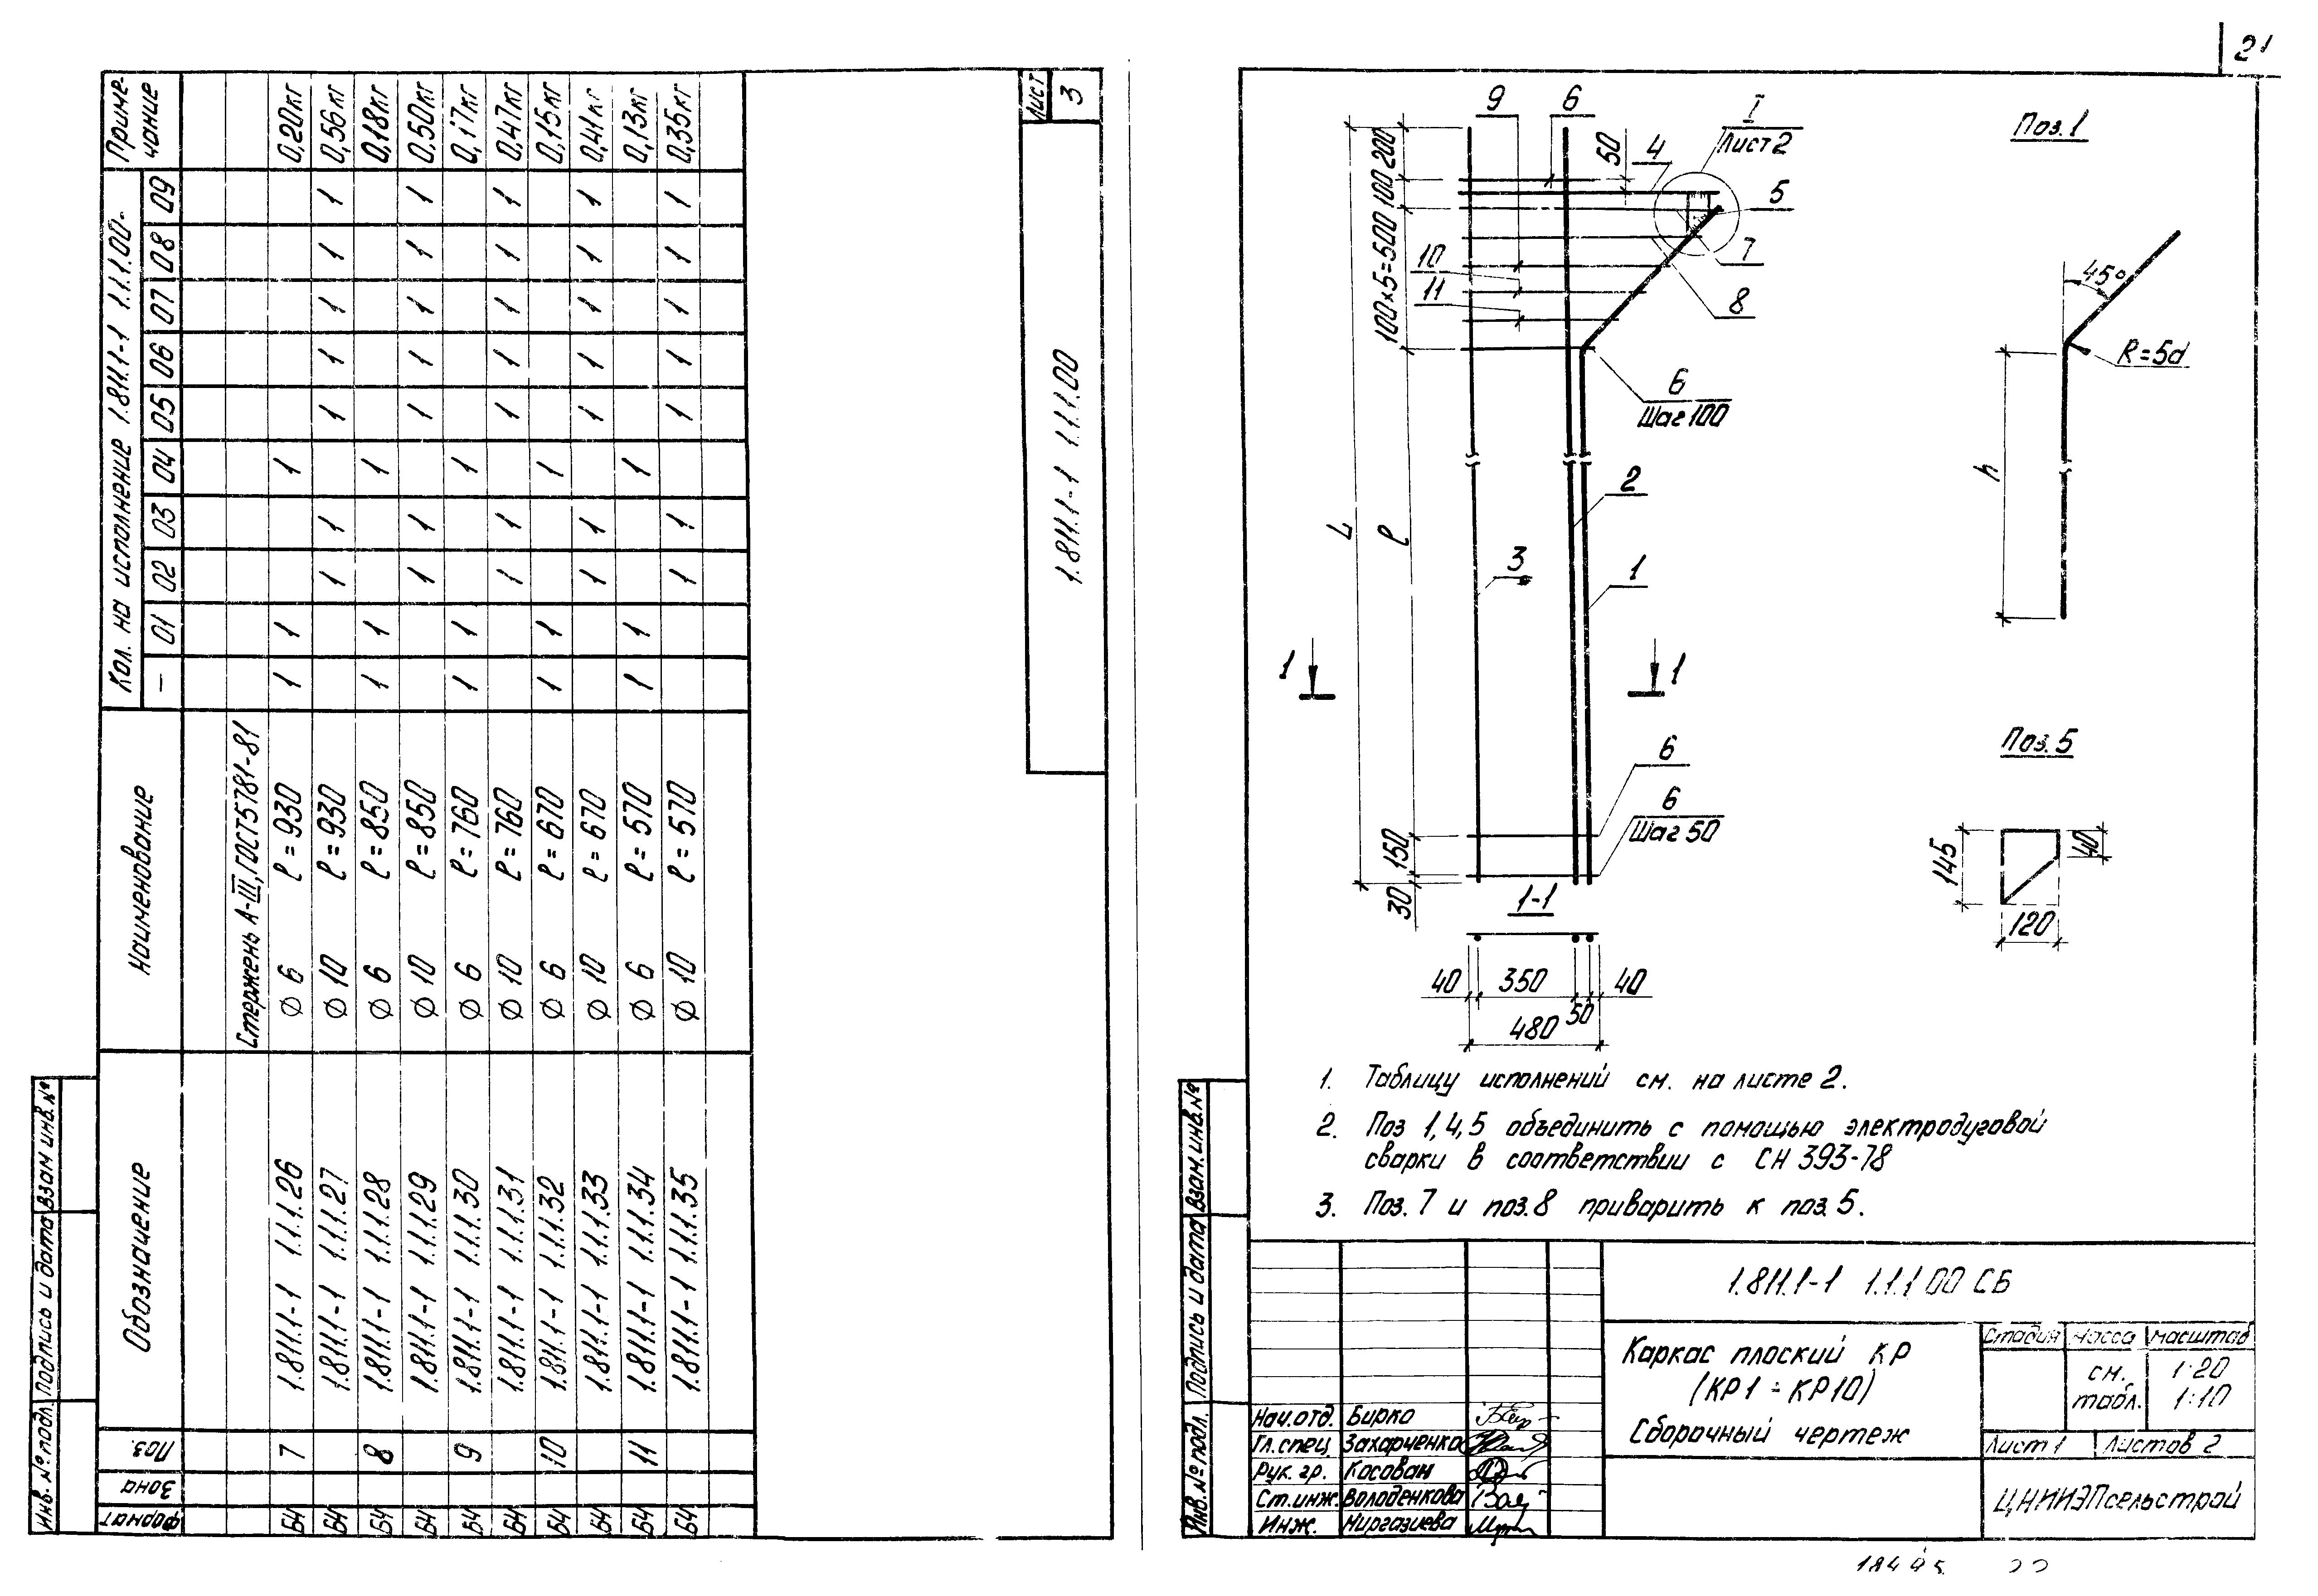 Формат
Зона
Поз.
Обозначение
Наименование
Кол. на исполнение 1.811.1-1 1.1.1.00-
Приме-
чание
— 01 02 03 04 05 06 07 08 09
Стержень А-III, ГОСТ 5781-81
БЧ 7 1.811.1-1 1.1.1.26 Ø 6 ℓ = 930 1 1 1 0,20кг
БЧ 1.811.1-1 1.1.1.27 Ø 10 ℓ = 930 1 1 1 1 1 1 1 0,56кг
БЧ 8 1.811.1-1 1.1.1.28 Ø 6 ℓ = 850 1 1 1 0,18кг
БЧ 1.811.1-1 1.1.1.29 Ø 10 ℓ = 850 1 1 1 1 1 1 1 0,50кг
БЧ 9 1.811.1-1 1.1.1.30 Ø 6 ℓ = 760 1 1 1 0,17кг
БЧ 1.811.1-1 1.1.1.31 Ø 10 ℓ = 760 1 1 1 1 1 1 1 0,47кг
БЧ 10 1.811.1-1 1.1.1.32 Ø 6 ℓ = 670 1 1 1 0,15кг
БЧ 1.811.1-1 1.1.1.33 Ø 10 ℓ = 670 1 1 1 1 1 1 1 0,41кг
БЧ 11 1.811.1-1 1.1.1.34 Ø 6 ℓ = 570 1 1 1 0,13кг
БЧ 1.811.1-1 1.1.1.35 Ø 10 ℓ = 570 1 1 1 1 1 1 1 0,35кг
Инв. № подл. Подпись и дата Взам инв. №
1.811.1-1 1.1.1.00
Лист
3
21
9
6
I
Лист 2
50
4
5
7
8
10
11
200
100
100×5=500
6
Шаг 100
2
3
1
L
ℓ
1
1
6
6
Шаг 50
150
30
1-1
40
350
50
40
480
Поз. 1
45°
R=5d
h
Поз. 5
145
40
120
1. Таблицу исполнений см. на листе 2.
2. Поз 1,4,5 объединить с помощью электродуговой
сварки в соответствии с СН 393-78
3. Поз. 7 и поз. 8 приварить к поз. 5.
Инв. № подл. Подпись и дата Взам. инв. №
1.811.1-1 1.1.1 00 СБ
Каркас плоский КР
(КР1 ÷ КР10)
Сборочный чертеж
Стадия Масса Масштаб
см.
табл.
1:20
1:10
Лист 1 Листов 2
ЦНИИЭПсельстрой
Нач. отд. Бирко
Гл. спец Захарченко
Рук. гр. Косован
Ст. инж. Володенкова
Инж. Миргазиева
18495 22